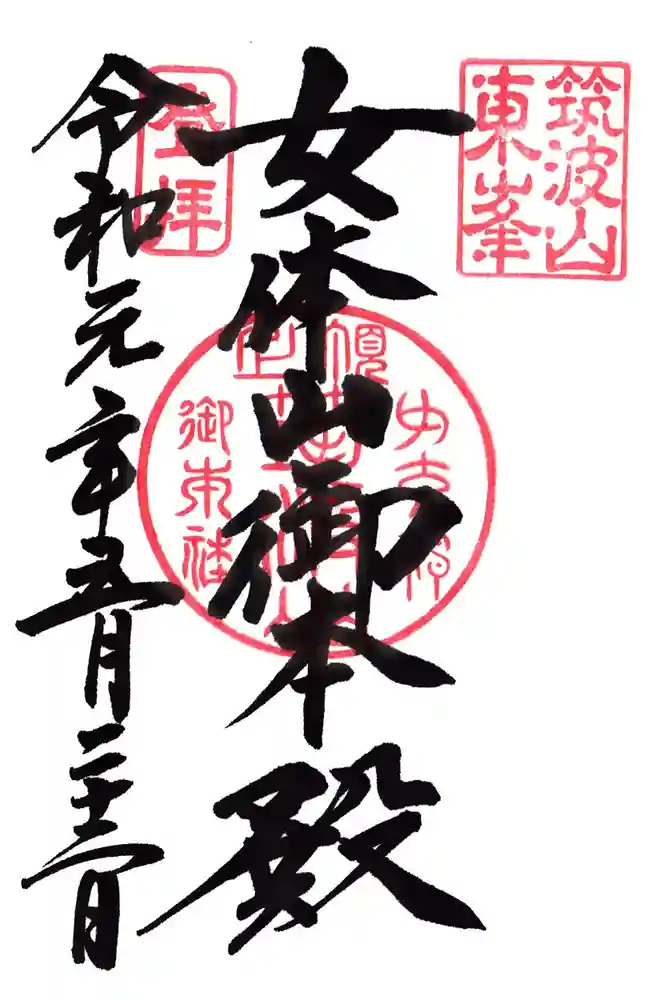 筑波山
東峯
女体山御本殿
御本社
登拝
令和元年五月二十三日